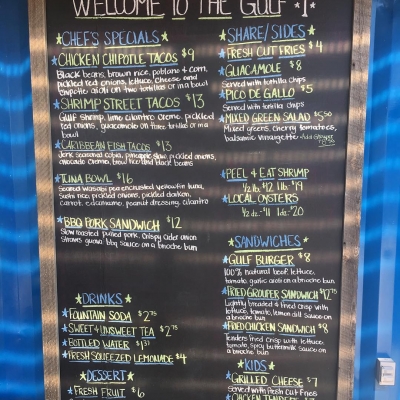 WELCOME TO THE GULF
CHEF'S SPECIALS
CHICKEN CHIPOTLE TACOS $9
Black beans, brown rice, poblano & corn,
pickled red onions, lettuce, cheese and
chipotle aioli on two tortillas or in a bowl
SHRIMP STREET TACOS $13
Gulf shrimp, lime cilantro creme, pickled
red onions, guacamole on three tortillas or in a
bowl
CARIBBEAN FISH TACOS $13
Jerk seasoned cobia, pineapple slaw, pickled onions,
avocado creme, brown rice and black beans
TUNA BOWL $16
Seared wasabi pea encrusted yellowfin tuna,
sushi rice, pickled onions, pickled daikon,
carrot, edamame, peanut dressing, cilantro
BBQ PORK SANDWICH $12
Slow roasted pulled pork, crispy cider onion
straws guava bbq sauce on a brioche bun
DRINKS
FOUNTAIN SODA $2.75
SWEET & UNSWEET TEA $2.75
BOTTLED WATER $1
FRESH SQUEEZED LEMONADE $4
DESSERT
FRESH FRUIT $6
SHARE/SIDES
FRESH CUT FRIES $4
GUACAMOLE $8
Served with tortilla chips
PICO DE GALLO $5
Served with tortilla chips
MIXED GREEN SALAD $5.50
Mixed greens, cherry tomatoes,
balsamic vinaigrette
PEEL & EAT SHRIMP
1/2 lb. $12 1 lb. $19
LOCAL OYSTERS
1/2 dz. $11 1 dz. $20
SANDWICHES
GULF BURGER $8
100% natural beef, lettuce,
tomato, garlic aioli on a brioche bun
FRIED GROUPER SANDWICH $12.75
Lightly breaded & fried crisp with
lettuce, tomato, lemon dill sauce on
a brioche bun
FRIED CHICKEN SANDWICH $8
Tenders fried crisp with lettuce,
tomato, spicy buttermilk sauce on
a brioche bun
KIDS
GRILLED CHEESE $7
Served with Fresh Cut Fries
CHICKEN TENDERS